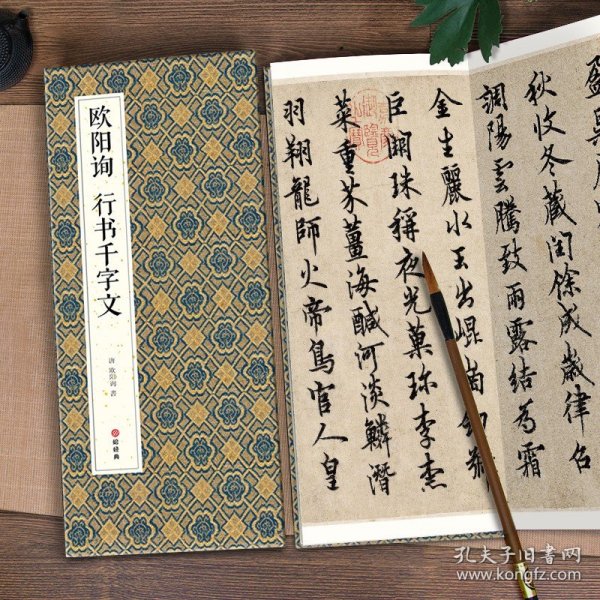 欧阳询 行书千字文
唐 欧阳询 書
盈昃
秋收冬藏閏餘成歲律呂
調陽雲騰致雨露結為霜
金生麗水玉出崐崗劍號
巨闕珠稱夜光菓珍李柰
菜重芥薑海醎河淡鱗潛
羽翔龍師火帝鳥官人皇
孔夫子旧书网
www.kongfz.com